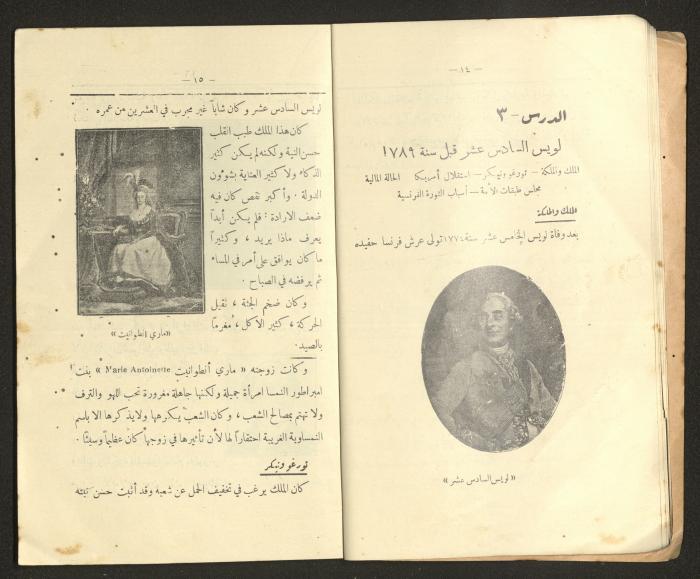 — ١٤ —
الدرس — ٣
لويس السادس عشر قبل سنة ١٧٨٩
الملك والملكة — تورغو ونيكر — استقلال أمريكا الحالة المالية
مجلس طبقات الأمة — أسباب الثورة الفرنسية
الملك والملكة
بعد وفاة لويس الخامس عشر سنة ١٧٧٤ تولى عرش فرنسا حفيده
« لويس السادس عشر »
— ١٥ —
لويس السادس عشر وكان شاباً غير مجرب في العشرين من عمره .
كان هذا الملك طيب القلب
حسن النية ولكنه لم يكن كثير
الذكاء ولا كثير العناية بشؤون
الدولة . وأكبر نقص كان فيه
ضعف الارادة : فلم يكن أبداً
يعرف ماذا يريد ، وكثيراً
ما كان يوافق على أمر في المساء
ثم يرفضه في الصباح .
وكان ضخم الجثة ، ثقيل
الحركة ، كثير الاكل ، مغرماً
بالصيد .
« ماري انطوانيت »
وكانت زوجته « ماري أنطوانيت Marie Antoinette » بنت
امبراطور النمسا امرأة جميلة ولكنها جاهلة مغرورة تحب اللهو والترف
ولا تهتم بمصالح الشعب ، وكان الشعب يكرهها ولا يذكرها الا باسم
النمساوية الغريبة احتقاراً لها لأن تأثيرها في زوجها كان عظيماً وسيئاً .
تورغو ونيكر
كان الملك يرغب في تخفيف الحمل عن شعبه وقد أثبت حسن نيته